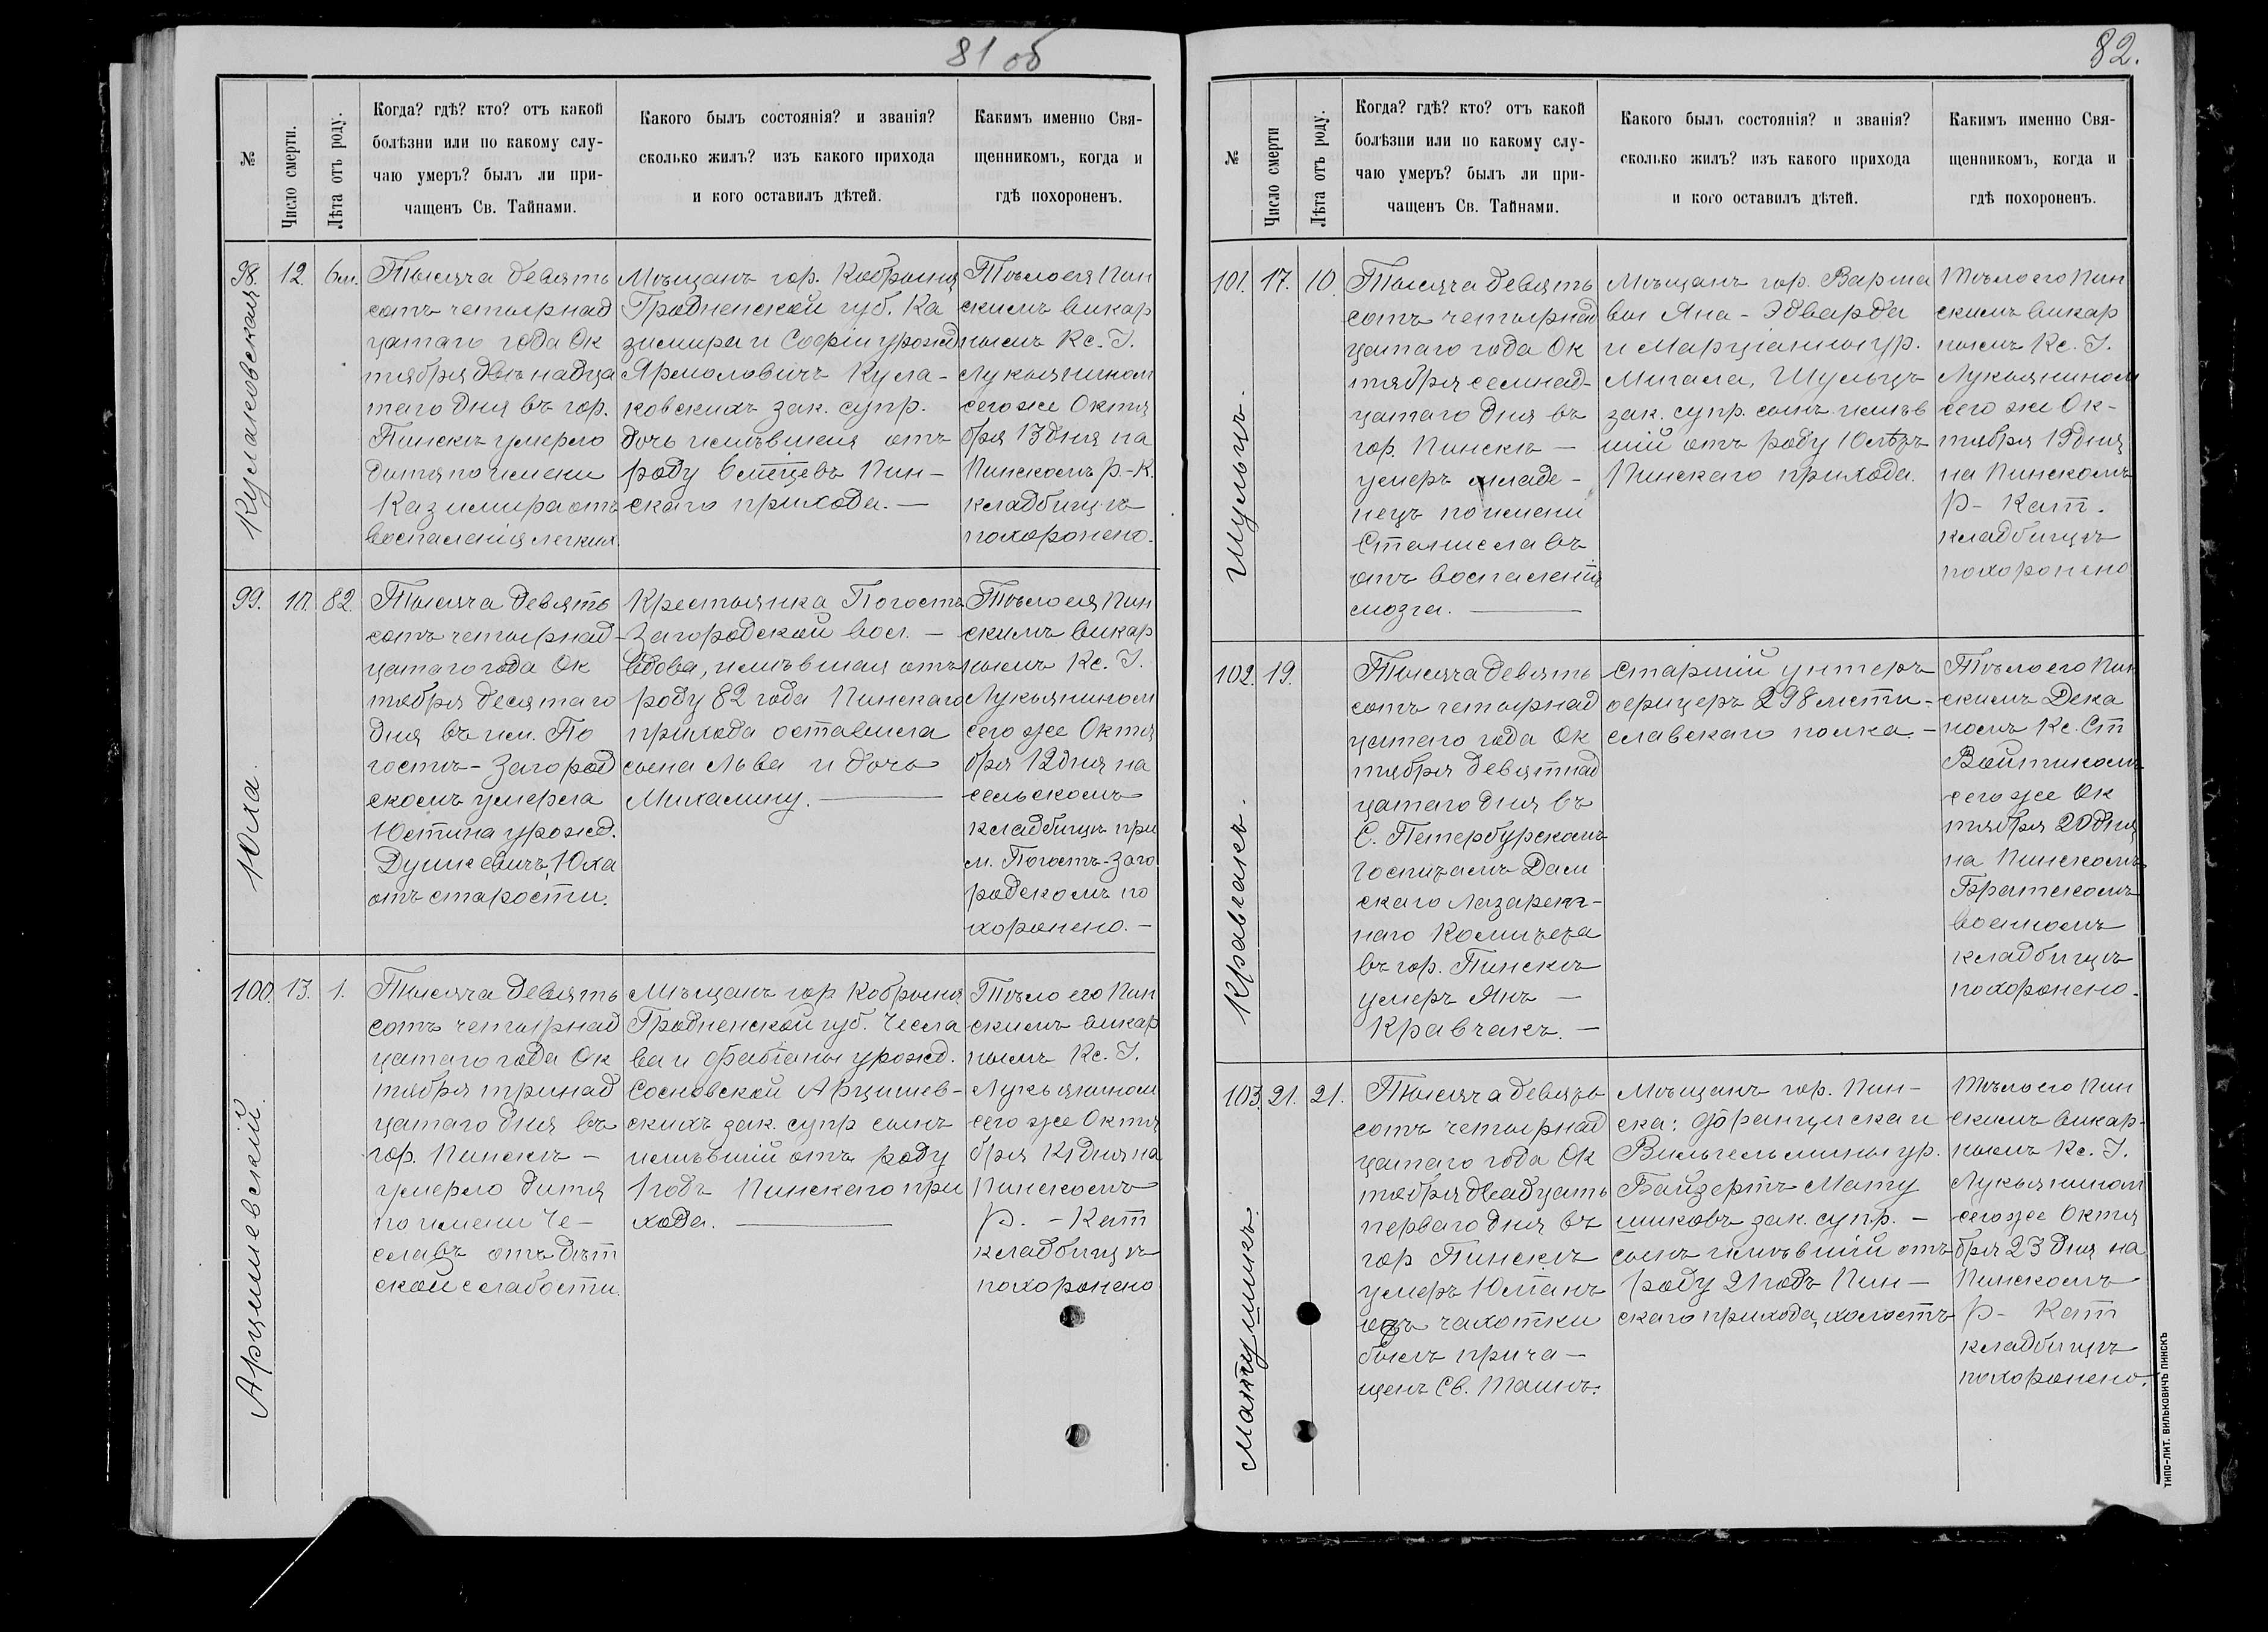 81 об
№
Число смерти.
Лѣта отъ роду.
Когда? гдѣ? кто? отъ какой
болѣзни или по какому слу-
чаю умеръ? былъ ли при-
чащенъ Св. Тайнами.
Какого былъ состоянія? и званія?
сколько жилъ? изъ какого прихода
и кого оставилъ дѣтей.
Какимъ именно Свя-
щенникомъ, когда и
гдѣ похороненъ.
98.
Кулаковская
12.
6 м.
Тысяча девять
сотъ четырнад
цатаго года Ок
тября двѣнадца
таго дня въ гор.
Пинскѣ умерло
дитя по имени
Казимира отъ
воспаленія легких
Мѣщанъ гор. Кобрыня
Гродненской губ. Ка
зимира и Софіи урожд
Ярмоловичъ Кула-
ковскихъ зак. супр.
дочь имѣвшая отъ
роду 6 мѣцевъ Пин-
скаго прихода. —
Тѣло ея Пин
скимъ викар
нымъ Кс. I.
Лукьянином
сего же Октя
бря 13 дня на
Пинскомъ Р-К.
кладбищѣ
похоронено.
99.
Юха.
10.
82
Тысяча девять
сотъ четырнад-
цатаго года Ок
тября десятаго
дня въ им. По
гостѣ-Загород
скомъ умерла
Юстина урожд.
Душкевичъ, Юха
отъ старости.
Крестьянка Погостъ
Загородской вол. —
вдова, имѣвшая отъ
роду 82 года Пинскаго
прихода оставила
сына Льва и дочь
Михалину. —
Тѣло ея Пин
скимъ викар
нымъ Кс. I.
Лукьянином
сего же Октя
бря 12 дня на
сельскомъ
кладбищѣ при
м. Погостъ-Заго
родскомъ по
хоронено. —
100.
Арцишевскій.
13.
1.
Тысяча девять
сотъ четырнад
цатаго года Ок
тября тринад
цатаго дня въ
гор. Пинскѣ —
умерло дитя
по имени Че-
славъ отъ дѣт
ской слабости.
Мѣщанъ гор Кобрыня
Гродненской губ. Чесла
ва и Фабіаны урожд.
Сосновской Арцишев-
скихъ зак. супр сынъ
имѣвшій отъ роду
1 годъ Пинскаго при
хода. —
Тѣло его Пин
скимъ викар
нымъ Кс. I.
Лукьянином
сего же Октя
бря дня на
Пинскомъ
Р. - Кат
кладбищѣ
похоронено
82.
№
Число смерти
Лѣта отъ роду.
Когда? гдѣ? кто? отъ какой
болѣзни или по какому слу-
чаю умеръ? былъ ли при-
чащенъ Св. Тайнами.
Какого былъ состоянія? и званія?
сколько жилъ? изъ какого прихода
и кого оставилъ дѣтей.
Какимъ именно Свя-
щенникомъ, когда и
гдѣ похороненъ.
101.
Шульцъ.
17.
10.
Тысяча девять
сотъ четырнад
цатаго года Ок
тября семнад-
цатаго дня въ
гор. Пинскѣ —
умеръ младе-
нецъ по имени
Станиславъ
отъ воспаленія
мозга. —
Мѣщанъ гор. Варша
вы Яна-Эдварда
и Марціанны ур.
Мигала, Шульцъ
зак. супр. сынъ имѣв
шій отъ роду 10 лѣтъ
Пинскаго прихода.
Тѣло его Пин
скимъ викар
нымъ Кс. I.
Лукьянином
сего же Ок-
тября 19 дня
на Пинскомъ
Р- Кат.
кладбищѣ
похоронено
102.
Кравчакъ.
19.
Тысяча девять
сотъ четырнад
цатаго года Ок
тября девятнад
цатаго дня въ
С. Петербурскомъ
госпиталѣ Дам
скаго Лазарет-
наго Комитета
въ гор. Пинскѣ
умеръ Янъ —
Кравчакъ. —
Старшій унтеръ
офицеръ 298 мсти-
славскаго полка. —
Тѣло его Пин
скимъ Дека
номъ Кс. Ст
Войтикомъ
сего же Ок
тября 20 дня
на Пинскомъ
Братскомъ
военномъ
кладбищѣ
похоронено.
103.
Матушикъ.
21.
21.
Тысяча девять
сотъ четырнад
цатаго года Ок
тября двадцать
перваго дня въ
гор Пинскѣ
умеръ Юліанъ
отъ чахотки
былъ прича-
щенъ Св. Таинъ.
Мѣщанъ гор. Пин-
ска: Франциска и
Вильгельмины ур.
Байзертъ Мату
шиковъ зак. супр. —
сынъ имѣвшій отъ
роду 21 годъ Пин-
скаго прихода, холостъ
Тѣло его Пин
скимъ викар-
нымъ Кс. I.
Лукьянином
сего же Октя
бря 23 дня на
Пинскомъ
Р- Кат
кладбищѣ
похоронено.
ТИПО-ЛИТ. ВИЛЬКОВИЧЪ ПИНСКЪ